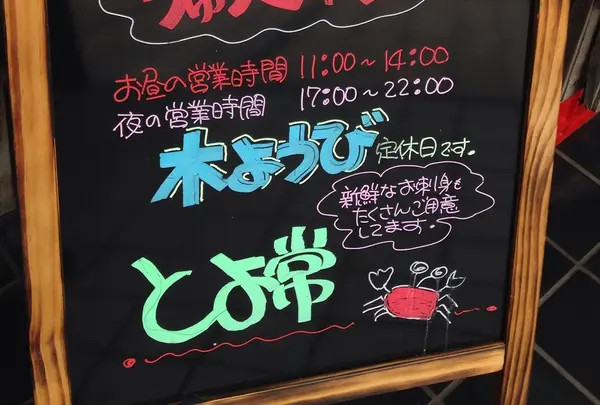 お昼の営業時間 11:00～14:00
夜の営業時間 17:00～22:00
木ようび定休日です。
新鮮なお刺身も
たくさんご用意
してます。
とよ常